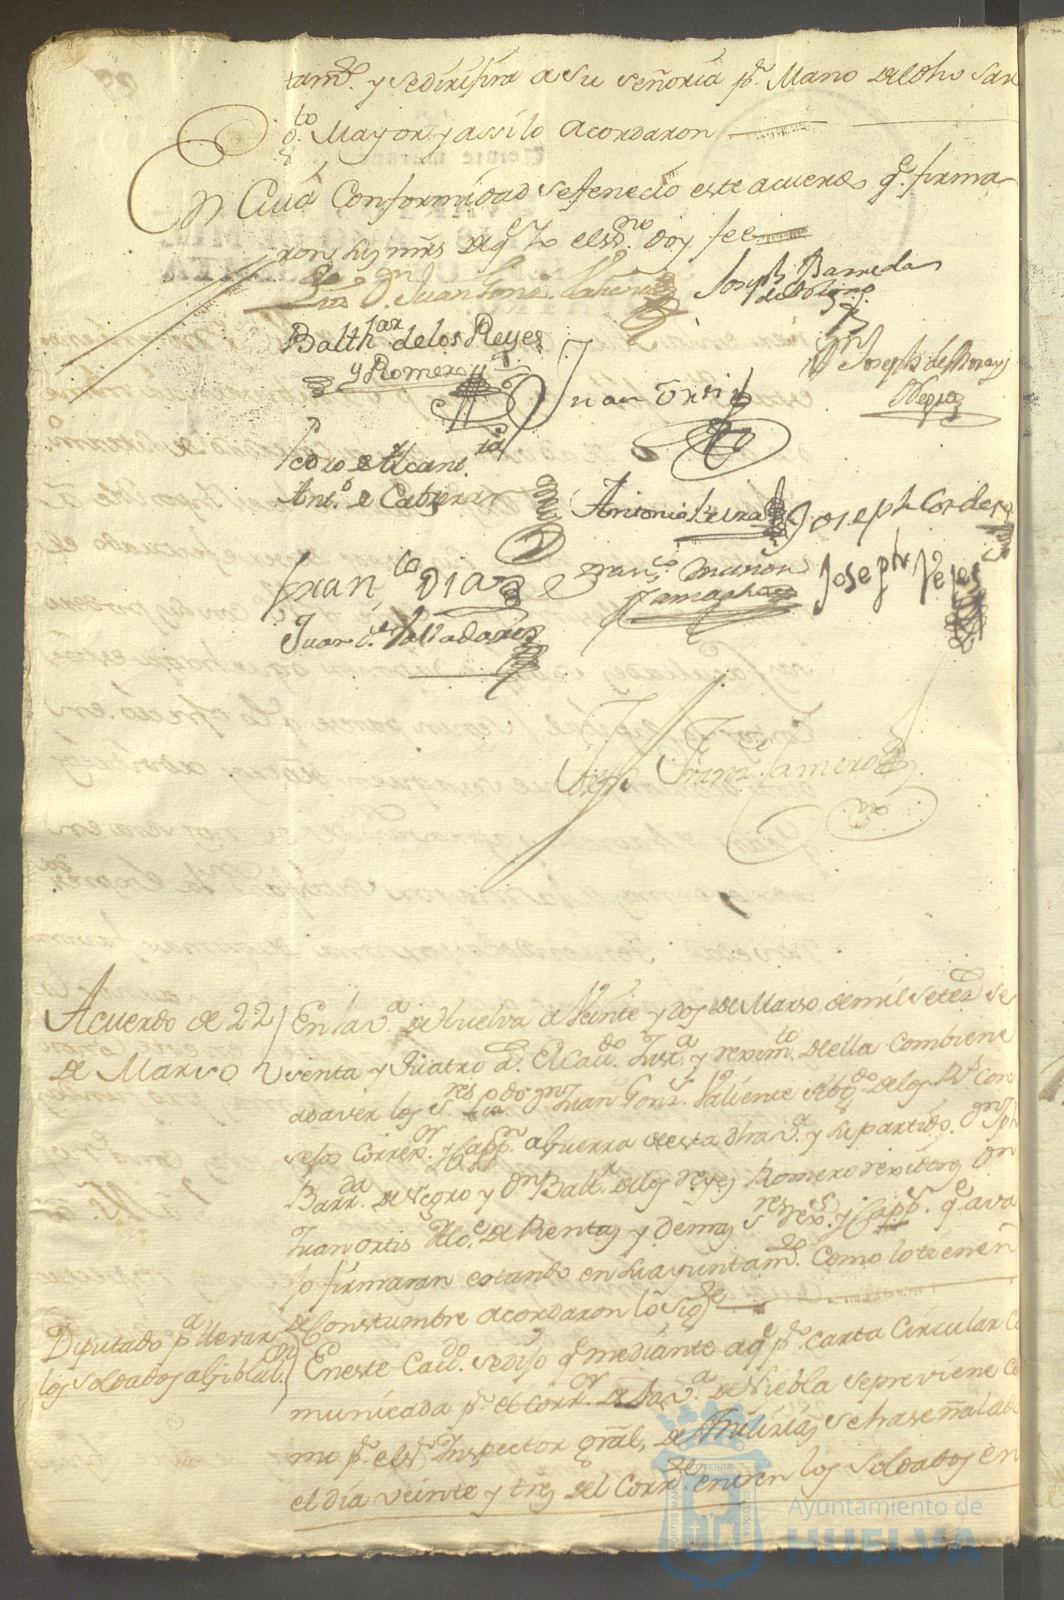 tam.te y se dirijira a su señoria p.r Mano de dho Sar
g.to Mayor y assi lo acordaron
En Cuia Conformidad se fenecio este acuerdo q.e firma
ron sus mrs de q.e Yo el ss.no doy fee
Liz.do D.n Juan Gonz. Valiente
Joseph Barreda
Balth.ar de los Reyes
y Romero
D.n Joseph de
Juan Ortis
Pedro de Alcant.ra
Ant.o de Cabrera
Antonio
Joseph Cordero
Fran.co Dias
Fran.co Muñon
Joseph Reyes
Juan de Valladares
Diego Fran.co Camero
Acuerdo de 22
de Marso
En la v.a de Huelva a Veinte y dos de Marso de mil setez.s se
senta y quatro a.s El Cav.do Just.a y reximi.to de ella Combiene
a saver los S.res Liz.do D.n Juan Gonz.z Valiente Abog.do de los R.s Con
sejos Correx.or y Capp.n a Guerra de esta dha v.a y su partido. D.n Jph
Barr.da de y D.n Balt.r de los reyes Romero rexidores D.n
Juan Ortis Alc.e de Rentas y demas S.res Rex.s y Capp.s q.e ava
jo firmaran estando en su ayuntam.to Como lo tienen
de Constumbre acordaron lo sig.te
Diputado p.a llevar
los soldados a Gibral.on
En este Cav.do se dijo q.e mediante a q.e p.r carta Circular Co
municada p.r el Corr.or de la v.a de Niebla se previene Co
mo p.r el s.r Inspector gral, de Milizias se ha señalado
el dia veinte y tres del Corr.te en los soldados en
Ayuntamiento de
HUELVA